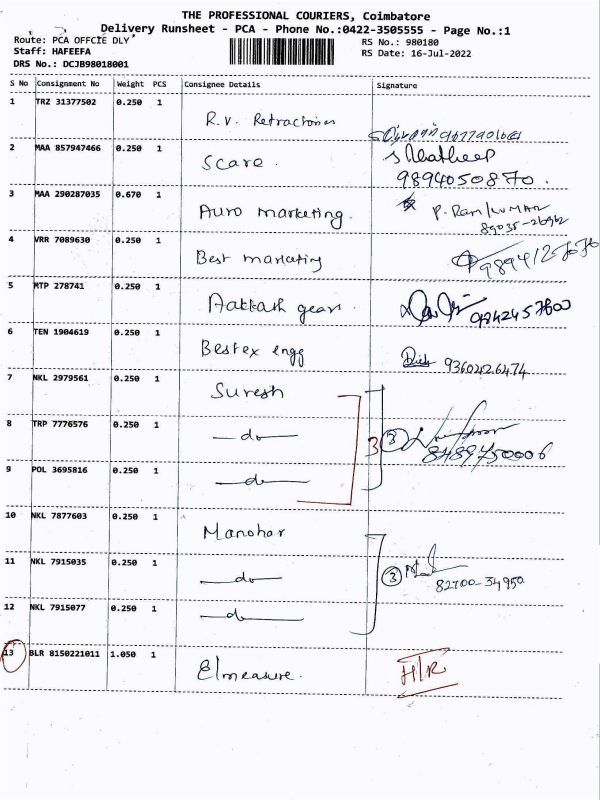 THE PROFESSIONAL COURIERS, Coimbatore
Delivery Runsheet - PCA - Phone No.:0422-3505555 - Page No.:1
Route: PCA OFFCIE DLY
RS No.: 980180
Staff: HAFEEFA
RS Date: 16-Jul-2022
DRS No.: DCJB98018001
S No Consignment No Weight PCS Consignee Details Signature
1 TRZ 31377502 0.250 1 R.V.
2 MAA 857947466 0.250 1 Scare.
9894050870.
3 MAA 290287035 0.670 1 Auro marketing. P. RamKUMAR
4 VRR 7089630 0.250 1 Best marketing
5 MTP 278741 0.250 1 Aakkash gears.
6 TEN 1904619 0.250 1 Bestex engg 9360426474
7 NKL 2979561 0.250 1 Suresh
8 TRP 7776576 0.250 1 —do— 3 3
8489750006
9 POL 3695816 0.250 1 —do—
10 NKL 7877603 0.250 1 Manohar
11 NKL 7915035 0.250 1 —do— 3
82200-34950
12 NKL 7915077 0.250 1 —do—
13 BLR 8150221011 1.050 1 Elmeasure. H/R